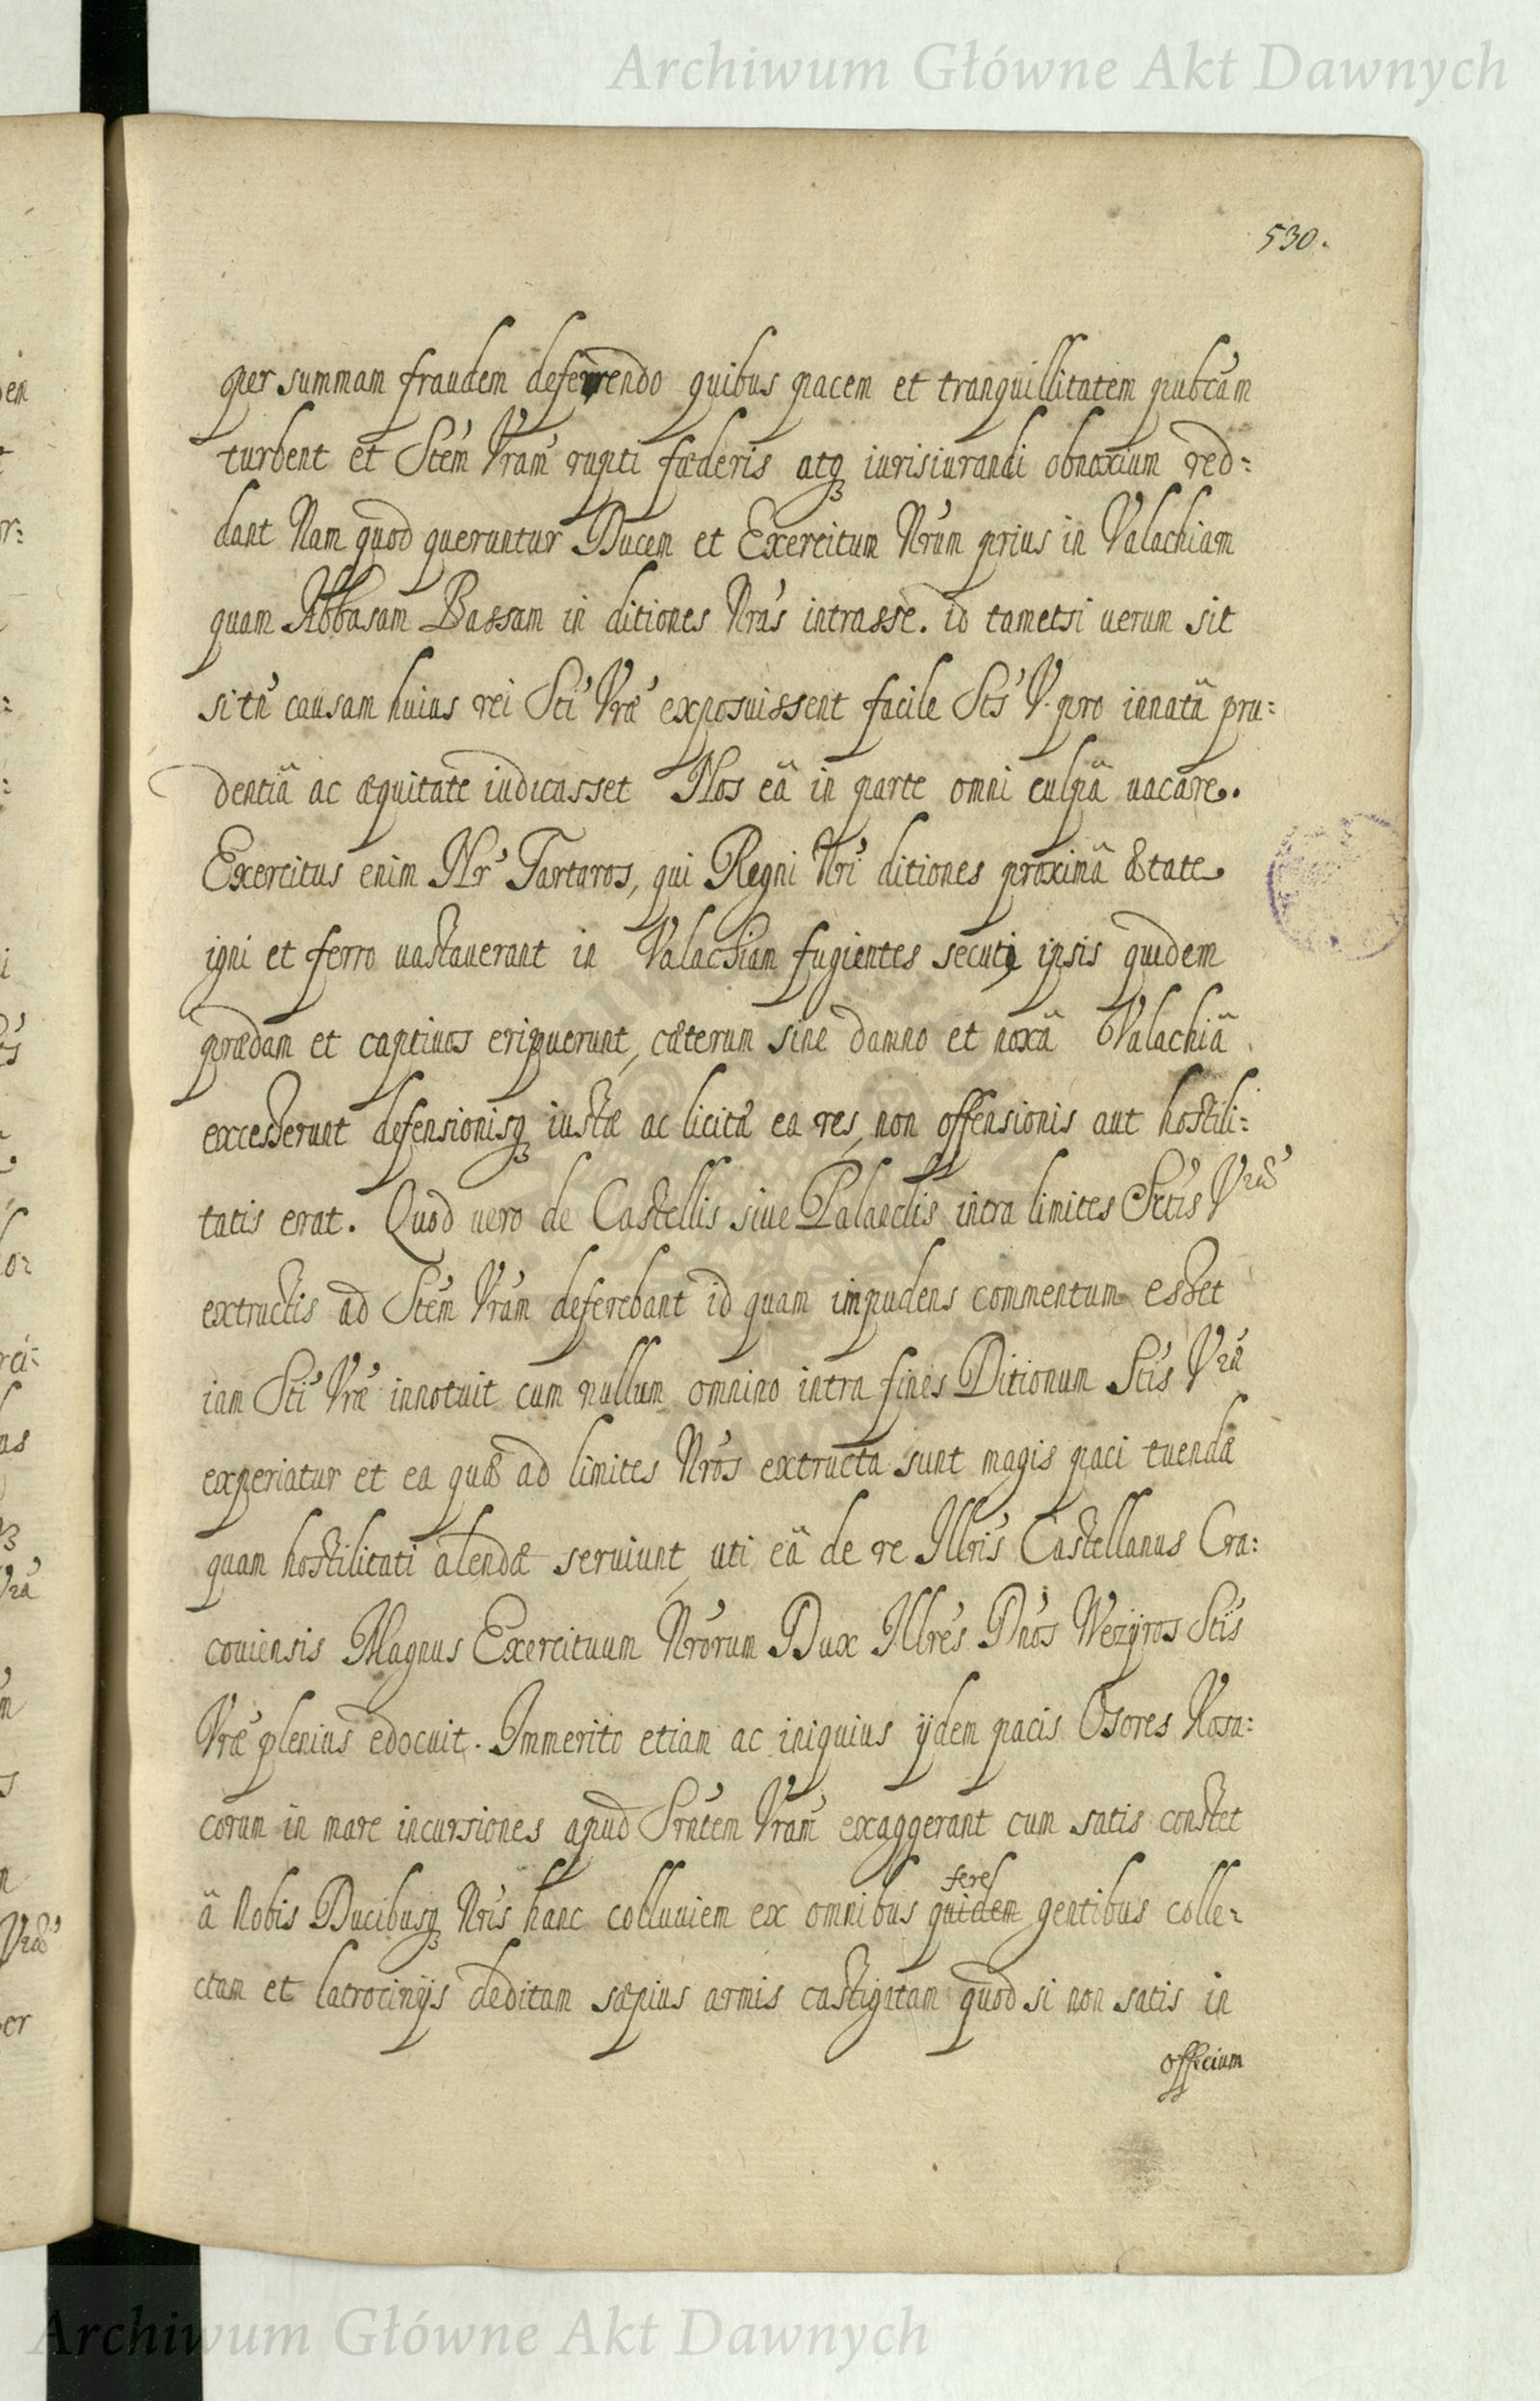 Archiwum Główne Akt Dawnych
530.
per summam fraudem deferrendo quibus pacem et tranquillitatem pubcam
turbent et Stem Vram rupti fæderis atq iurisiurandi obnoxium red:
dant Nam quod queruntur Ducem et Exercitum Nrum prius in Valachiam
quam Abbasam Bassam in ditiones Nras intrasse. id tametsi uerum sit
si tn causam huius rei Sti Vræ exposuissent facile Sts V. pro innatâ pru:
dentiâ ac æquitate iudicasset Nos eâ in parte omni culpâ uacare.
Exercitus enim Nr Tartaros, qui Regni Nri ditiones proximâ æstate
igni et ferro uastauerant in Valachiam fugientes secuti ipsis quidem
prædam et captiuos eripuerunt, cæterum sine damno et noxâ Valachiâ
excesserunt defensionisq iustæ ac licitæ ea res, non offensionis aut hostili:
tatis erat. Quod uero de Castellis siue Palanclis intra limites Sctis Vræ
extructis ad Stem Vram deferebant id quam impudens commentum esset
iam Sti Vræ innotuit cum nullum omnino intra fines Ditionum Stis Vræ
experiatur et ea quæ ad limites Nros extructa sunt magis paci tuendæ
quam hostilitati alendæ seruiunt, uti eâ de re Illris Castellanus Cra:
couiensis Magnus Exercituum Nrorum Dux Illres Dnos Wezyros Stis
Vræ plenius edocuit. Immerito etiam ac iniquius ijdem pacis Osores Kosa:
corum in mare incursiones apud Srntem Vram exaggerant cum satis constet
â Nobis Ducibusq Nris hanc colluuiem ex omnibus quidem fere gentibus colle:
ctam et latrocinijs deditam sæpius armis castigatam quod si non satis in
officium
Archiwum Główne Akt Dawnych